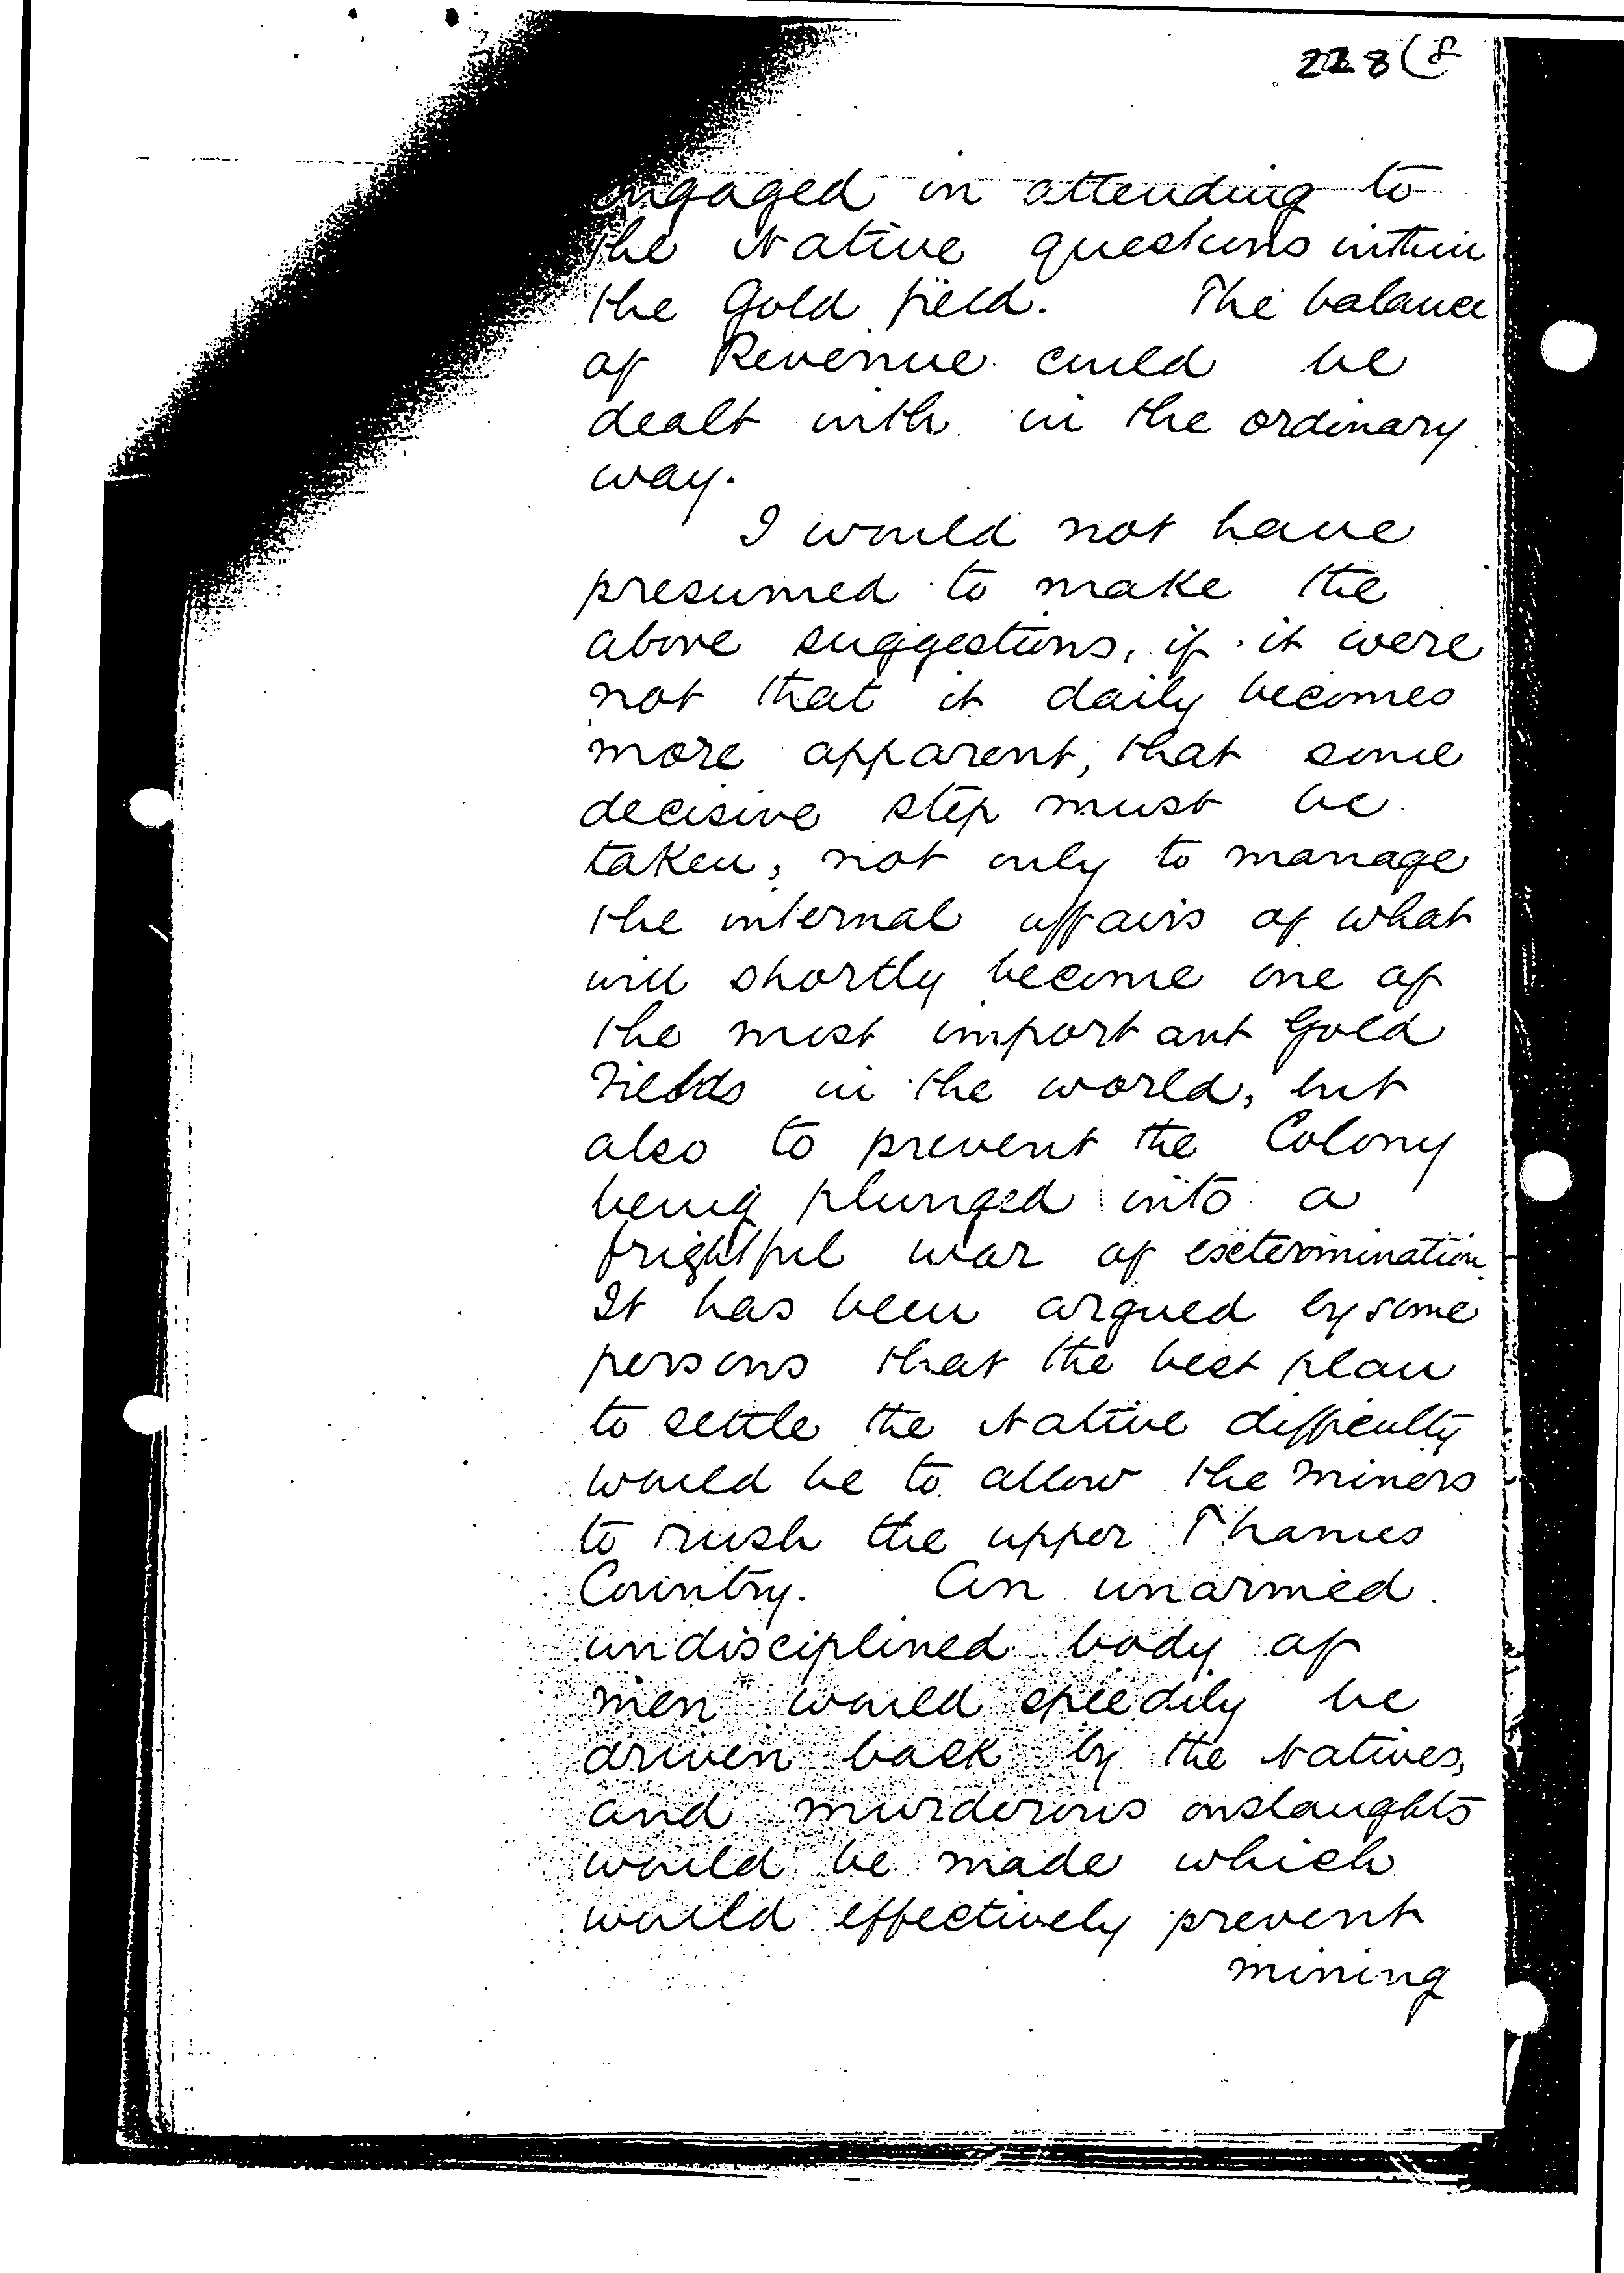 228 (8
engaged in attending to
the Native questions within
the Gold field. The balance
of Revenue could be
dealt with in the ordinary
way.
I would not have
presumed to make the
above suggestions, if it were
not that it daily becomes
more apparent, that some
decisive step must be
taken, not only to manage
the internal affairs of what
will shortly become one of
the most important Gold
Fields in the world, but
also to prevent the Colony
being plunged into a
frightful war of extermination.
It has been argued by some
persons that the best plan
to settle the Native difficulty
would be to allow the miners
to rush the upper Thames
Country. An unarmed
undisciplined body of
men would speedily be
driven back by the Natives,
and murderous onslaughts
would be made which
would effectively prevent
mining